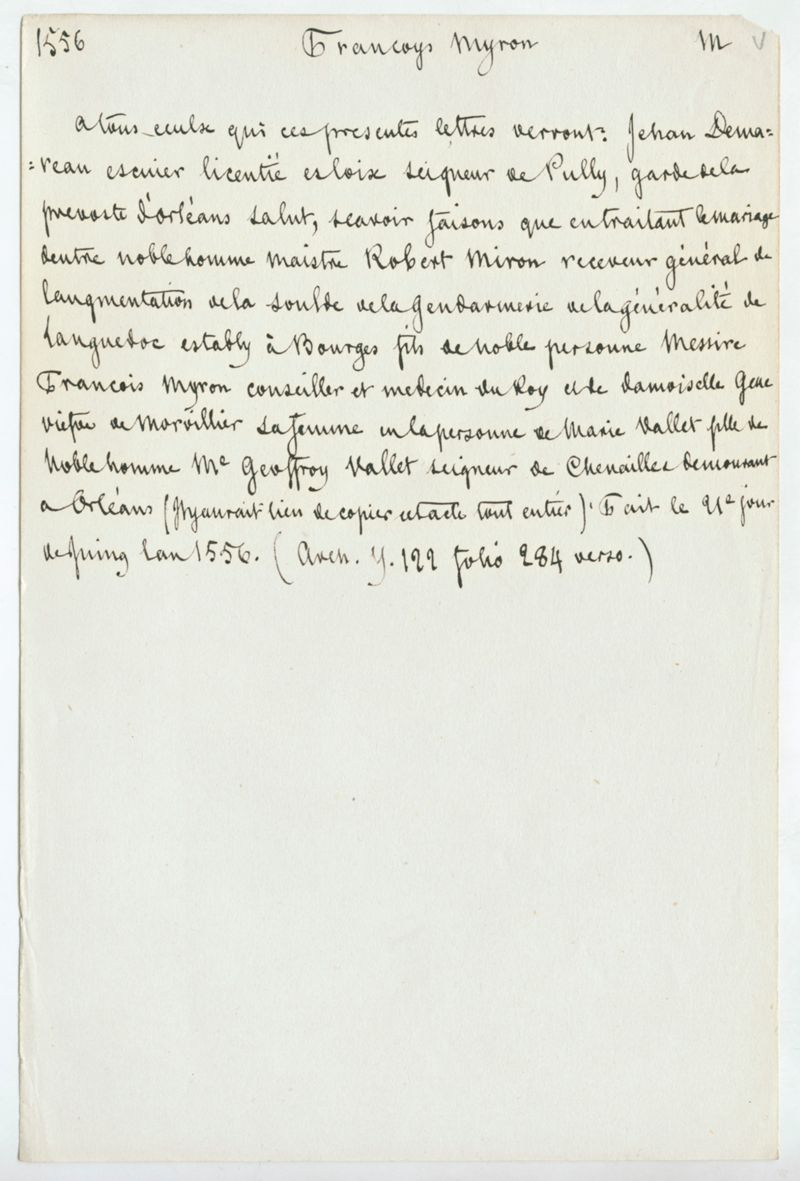 1556 Francoys Myron M V
a tous ceulx qui ces presentes lettres verront: Jehan Dema=
=reau escuier licentié es loix seigneur de Pully, garde de la
prevoste d'orléans salut, scavoir faisons que en traitant le mariage
dentre noble homme maistre Robert Miron receveur général de
laugmentation de la soulde de la gendarmerie de la généralité de
Languedoc estably à Bourges fils de noble personne Messire
Francois Myron conseiller et medecin du Roy et de damoiselle Gene
viefve de Morvillier sa femme en la personne de Marie Vallet fille de
Noble homme Me Geoffroy Vallet seigneur de Chenailles demourant
a Orléans (Il y aurait lieu de copier cet acte tout entier). Fait le 21e jour
de Juing lan 1556. (Arch. Y. 122 folio 284 verso.)